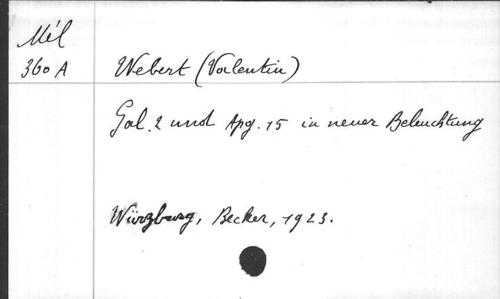 Mél
360 A Webert (Valentin)
Gal. 2 und Apg. 15 in neuer Beleuchtung
Würzburg, Becker, 1923.